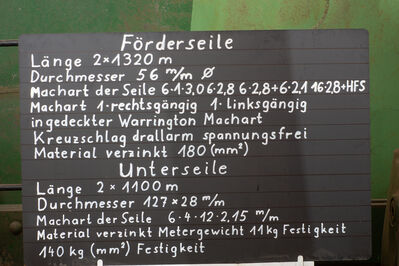 Förderseile
Länge 2×1320 m
Durchmesser 56 m/m Ø
Machart der Seile 6·1·3,0 6·2,8 6·2,8+6·2,1 16·2,8+HFS
Machart 1·rechtsgängig 1·linksgängig
in gedeckter Warrington Machart
Kreuzschlag drallarm spannungsfrei
Material verzinkt 180 (mm²)
Unterseile
Länge 2×1100 m
Durchmesser 127×28 m/m
Machart der Seile 6·4·12·2,15 m/m
Material verzinkt Metergewicht 11 kg Festigkeit
140 kg (mm²) Festigkeit